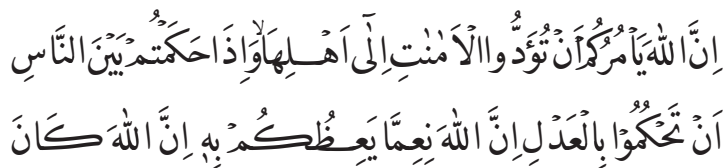 اِنَّ اللّٰهَ يَاْمُرُكُمْ اَنْ تُؤَدُّوا الْاَمٰنٰتِ اِلٰٓى اَهْلِهَاۙ وَاِذَا حَكَمْتُمْ بَيْنَ النَّاسِ
اَنْ تَحْكُمُوْا بِالْعَدْلِ اِنَّ اللّٰهَ نِعِمَّا يَعِظُكُمْ بِهٖ اِنَّ اللّٰهَ كَانَ